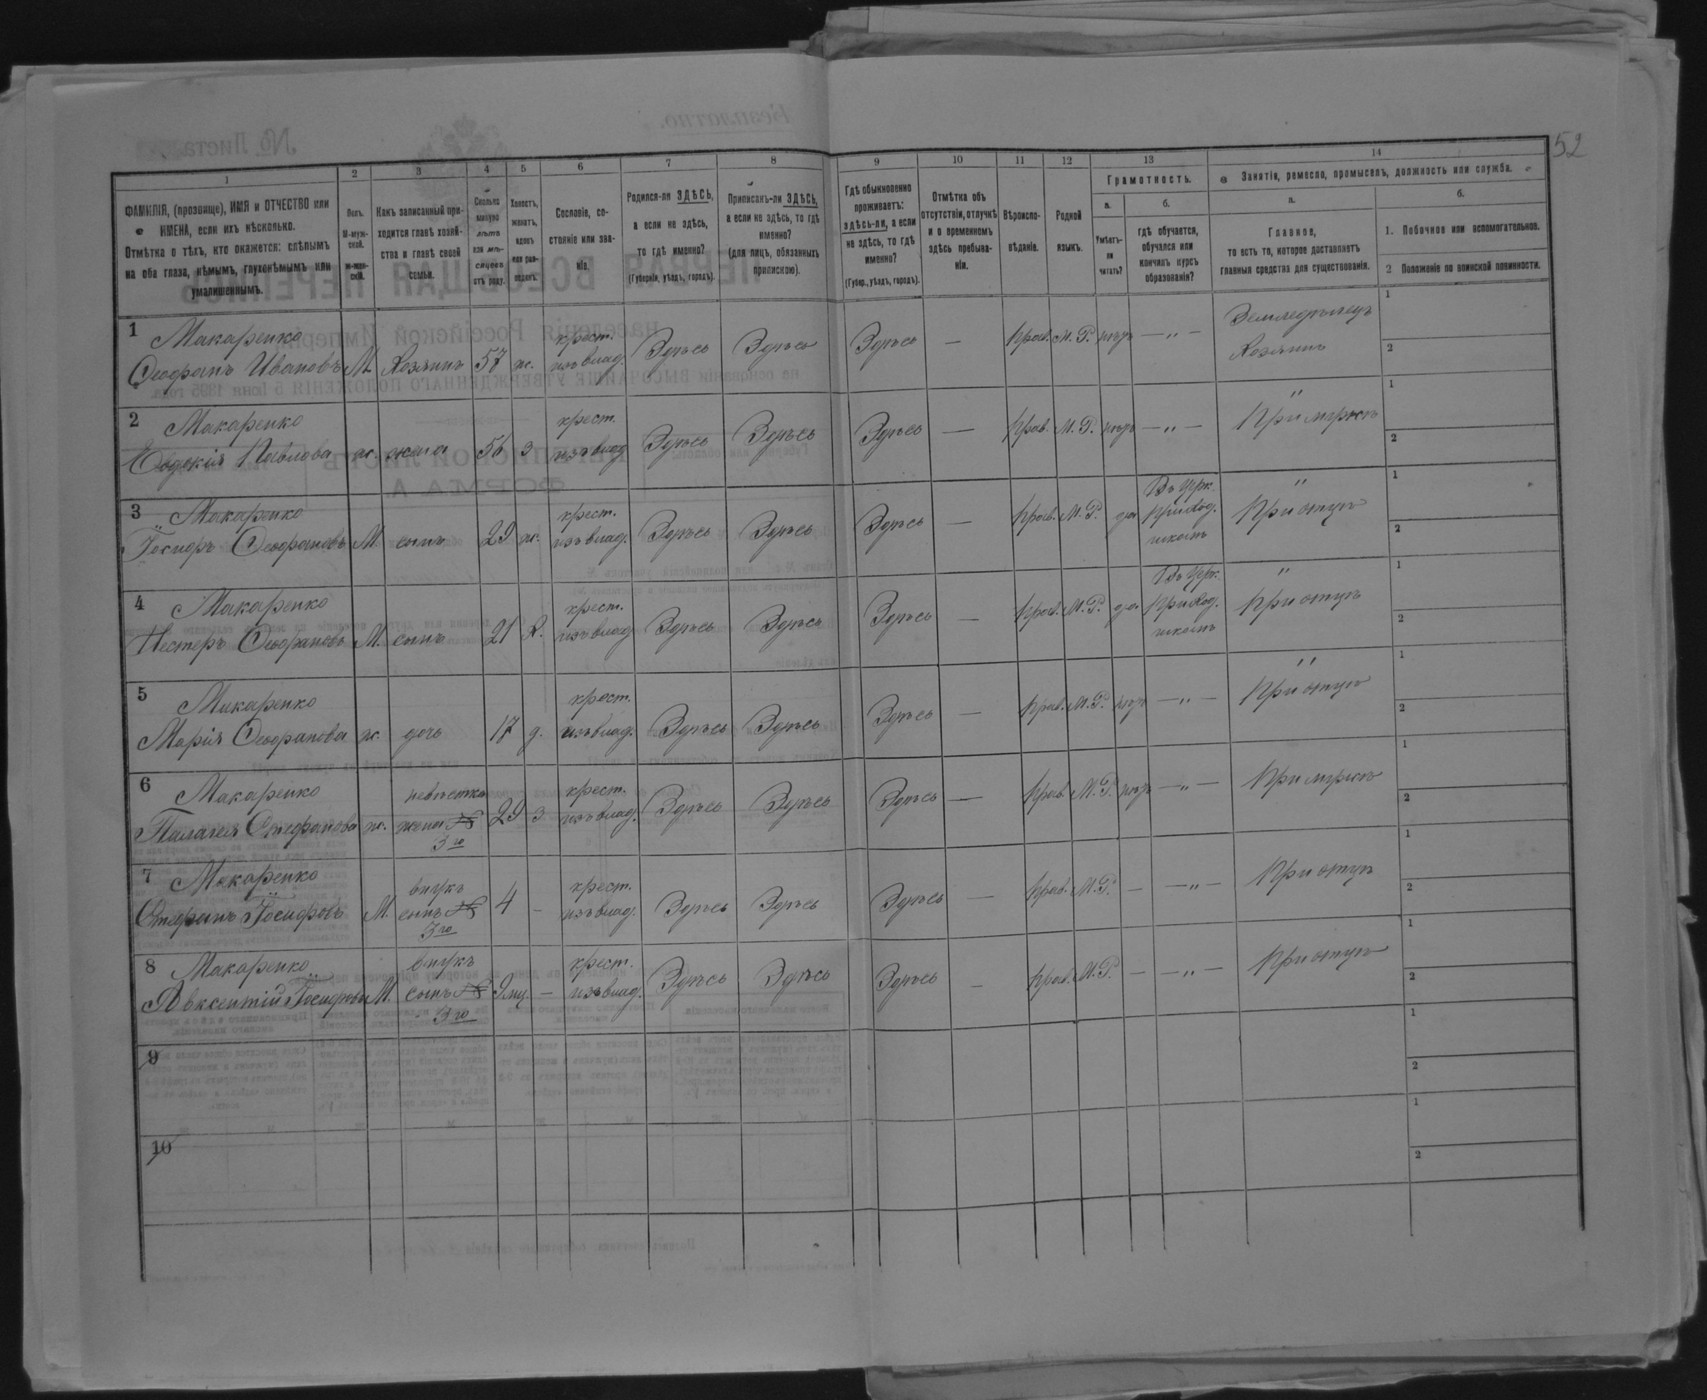 52
1 2 3 4 5 6 7 8 9 10 11 12 13 14
ФАМИЛІЯ, (прозвище), ИМЯ и ОТЧЕСТВО или
ИМЕНА, если ихъ нѣсколько.
Отмѣтка о тѣхъ, кто окажется: слѣпымъ
на оба глаза, нѣмымъ, глухонѣмымъ или
умалишеннымъ.
Полъ.
М-муж-
ской.
ж-жен-
скій.
Какъ записанный при-
ходится главѣ хозяй-
ства и главѣ своей
семьи.
Сколько
минуло
лѣтъ
или мѣ-
сяцевъ
отъ роду.
Холостъ,
женатъ,
вдовъ
или раз-
веденъ.
Сословіе, со-
стояніе или зва-
ніе.
Родился-ли ЗДѢСЬ,
а если не здѣсь,
то гдѣ именно?
(Губернія, уѣздъ, городъ).
Приписанъ-ли ЗДѢСЬ,
а если не здѣсь, то гдѣ
именно?
(для лицъ, обязанныхъ
припискою).
Гдѣ обыкновенно
проживаетъ:
здѣсь-ли, а если
не здѣсь, то гдѣ
именно?
(Губер., уѣздъ, городъ).
Отмѣтка объ
отсутствіи, отлучкѣ
и о временномъ
здѣсь пребыва-
ніи.
Вѣроиспо-
вѣданіе.
Родной
языкъ.
Грамотность.
а.
Умѣетъ-
ли
читать?
б.
гдѣ обучается,
обучался или
кончилъ курсъ
образованія?
Занятія, ремесло, промыселъ, должность или служба.
а.
Главное,
то есть то, которое доставляетъ
главныя средства для существованія.
б.
1. Побочное или вспомогательное.
2 Положеніе по воинской повинности.
1 Макаренко крест. Земледѣлецъ 1
Ѳеофанъ Ивановъ М. Хозяинъ 57 ж. изъ влад. Здѣсь Здѣсь Здѣсь — Прав. М. Р. нѣтъ — „ — Хозяинъ 2
2 Макаренко крест. " 1
Евдокія Павлова ж. жена 56 з изъ влад. Здѣсь Здѣсь Здѣсь — Прав. М. Р. нѣтъ — „ — При мужѣ 2
3 Макаренко крест. Въ Црк. " 1
Іосифъ Ѳеофановъ М. сынъ 29 ж. изъ влад. Здѣсь Здѣсь Здѣсь — Прав. М. Р. да приход. При отцѣ 2
школѣ
4 Макаренко крест. Въ Црк. " 1
Несторъ Ѳеофановъ М. сынъ 21 Х. изъ влад. Здѣсь Здѣсь Здѣсь — Прав. М. Р. да приход. При отцѣ 2
школѣ
5 Макаренко крест. " 1
Марія Ѳеофанова ж. дочь 17 д. изъ влад. Здѣсь Здѣсь Здѣсь — Прав. М. Р. нѣтъ — „ — При отцѣ 2
6 Макаренко невѣстка крест. 1
Палагея Стефанова ж. жена № 29 з изъ влад. Здѣсь Здѣсь Здѣсь — Прав. М. Р. нѣтъ — „ — При мужѣ 2
3го
7 Макаренко внукъ крест. 1
Стефанъ Іосифовъ М. сынъ № 4 — изъ влад. Здѣсь Здѣсь Здѣсь — Прав. М. Р. — — „ — При отцѣ 2
3го
8 Макаренко внукъ крест. 1
Авксентій Іосифовъ М. сынъ № 9 мц. — изъ влад. Здѣсь Здѣсь Здѣсь — Прав. М. Р. — — „ — При отцѣ 2
3го
9 1
2
10 1
2